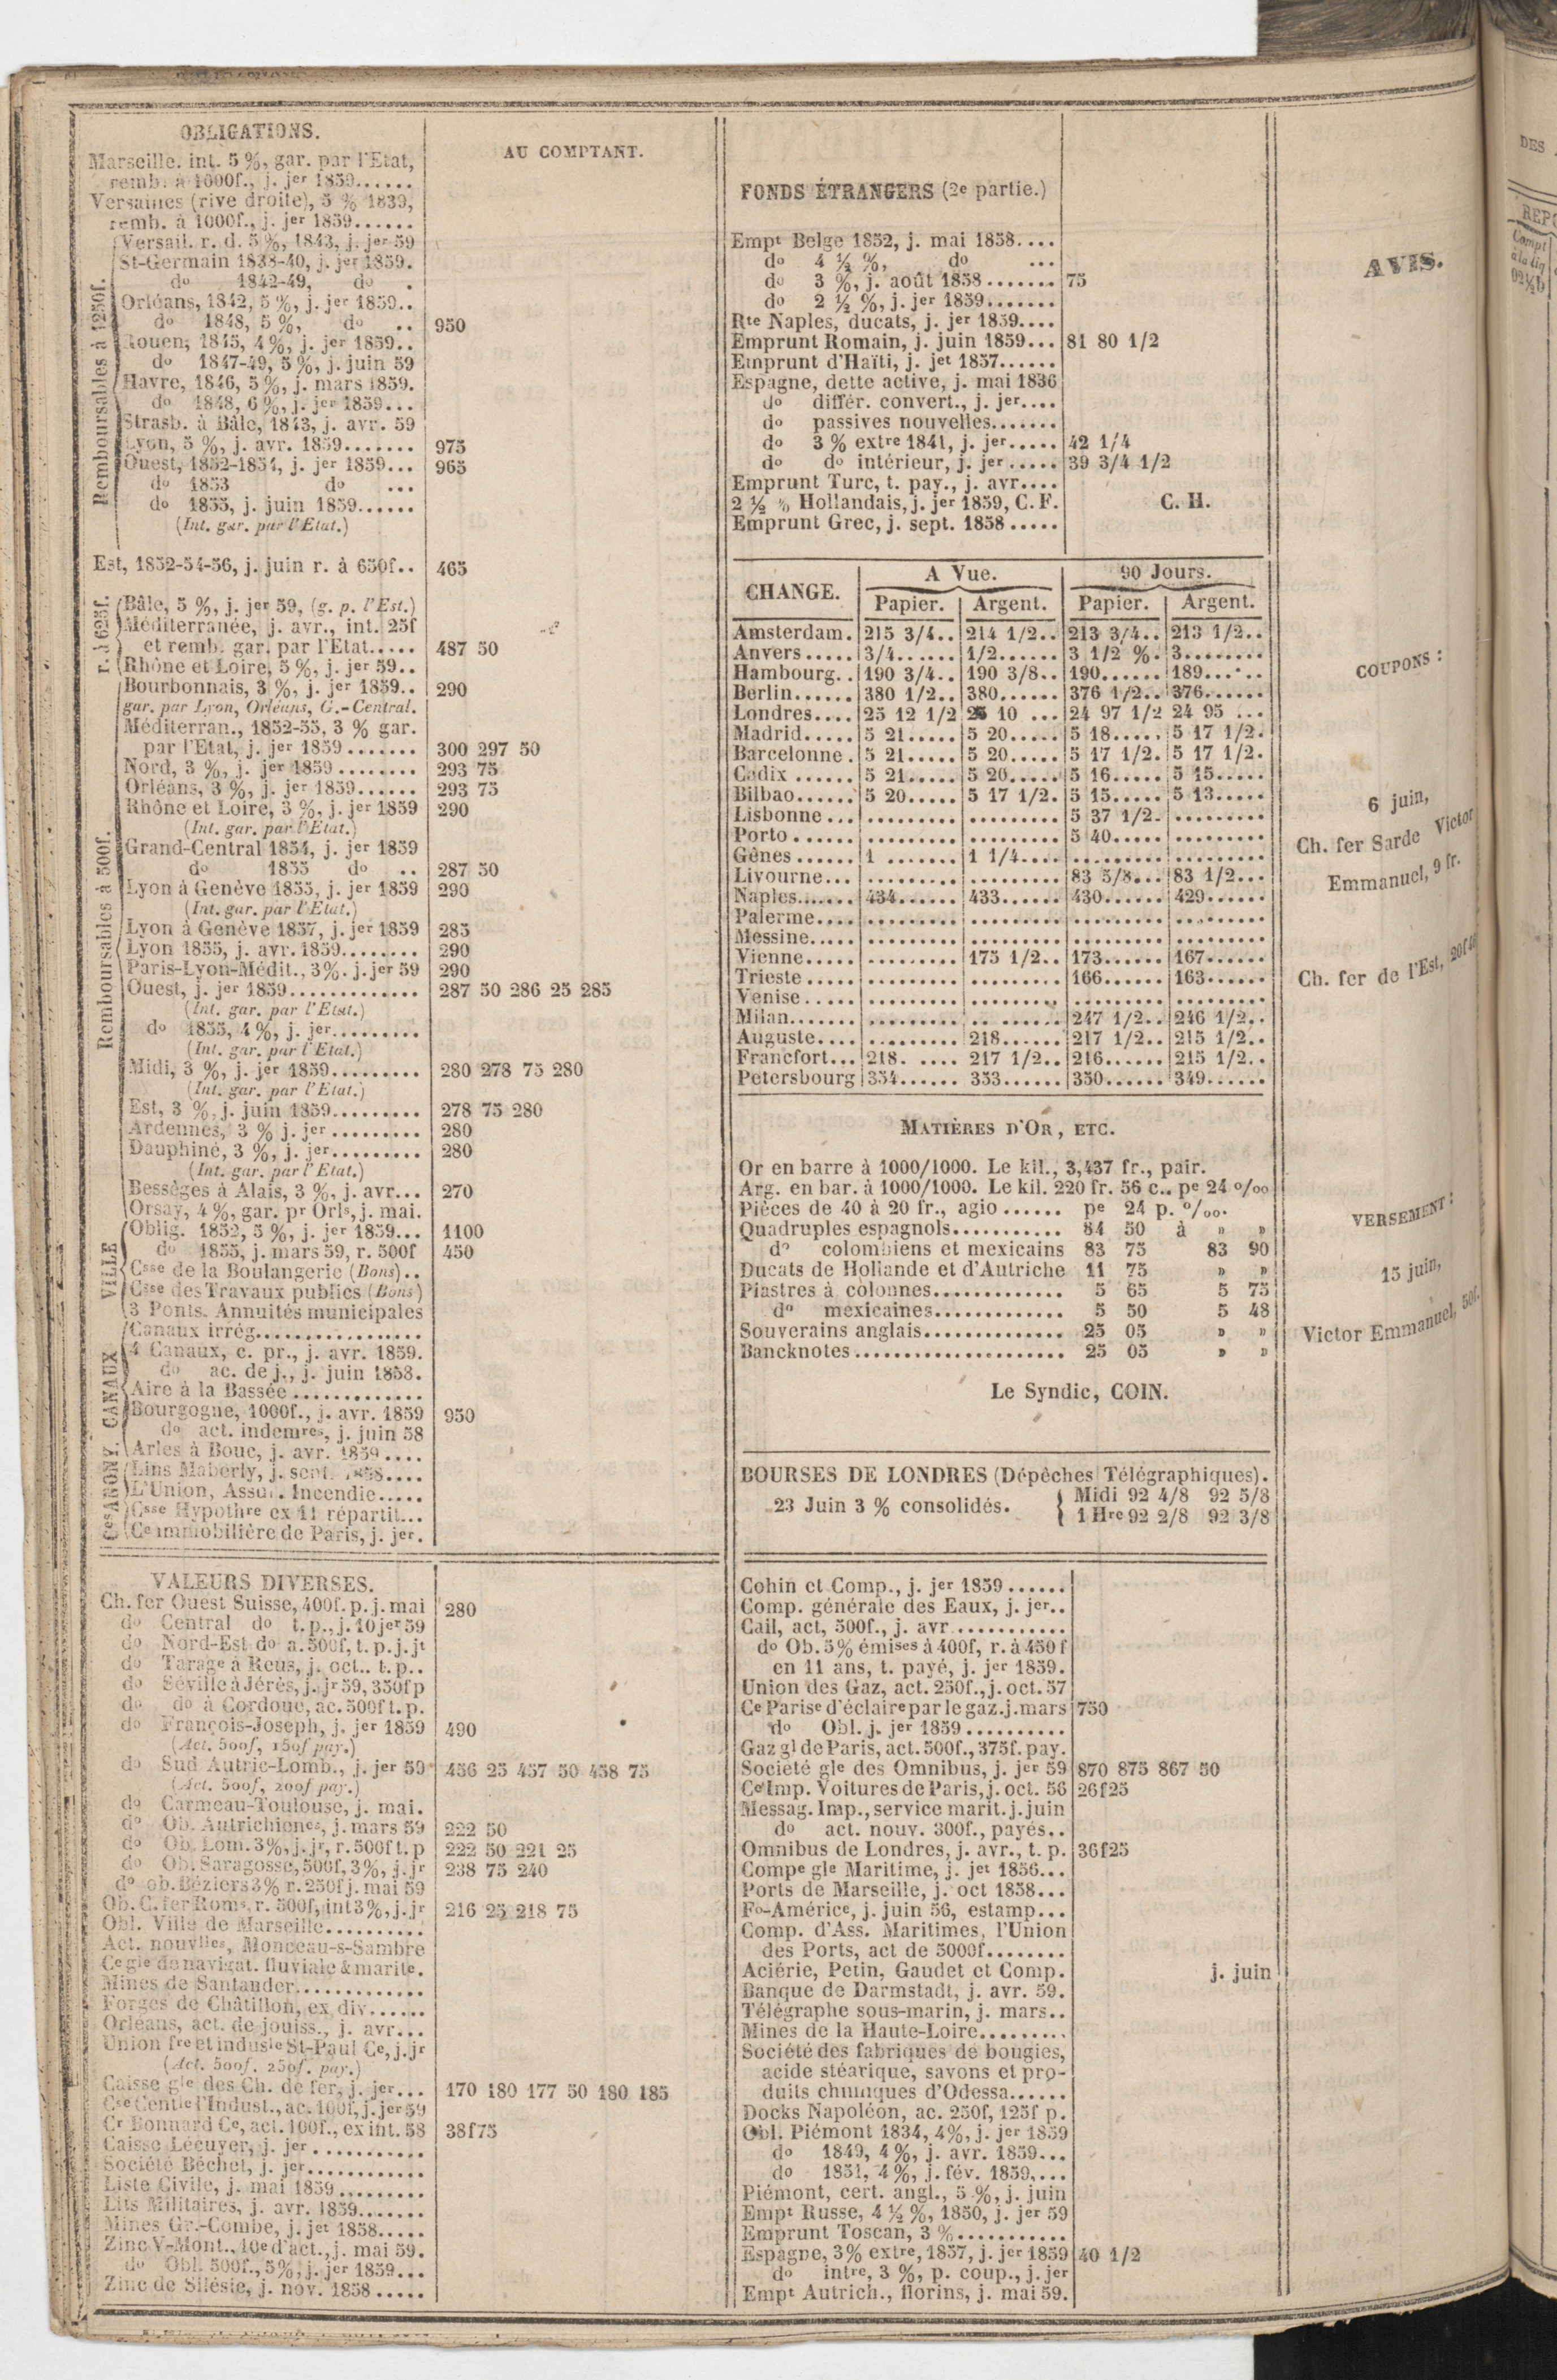 OBLIGATIONS.
AU COMPTANT.
Marseille. int. 5 %, gar. par l'Etat,
remb. à 1000f., j. jer 1859......
Versailles (rive droite), 5 % 1839,
remb. à 1000f., j. jer 1859......
Remboursables à 1250f.
Versail. r. d. 5 %, 1843, j. jer 59
St-Germain 1838-40, j. jer 1859.
do 1842-49, do .
Orléans, 1842, 5 %, j. jer 1859..
do 1848, 5 %, do .. 950
Rouen, 1845, 4 %, j. jer 1859..
do 1847-49, 5 %, j. juin 59
Havre, 1846, 5 %, j. mars 1859.
do 1848, 6 %, j. jer 1859...
Strasb. à Bâle, 1843, j. avr. 59
Lyon, 5 %, j. avr. 1859....... 975
Ouest, 1852-1854, j. jer 1859... 965
do 1853 do ...
do 1855, j. juin 1859......
(Int. gar. par l'Etat.)
Est, 1852-54-56, j. juin r. à 650f.. 465
r. à 625f.
Bâle, 5 %, j. jer 59, (g. p. l'Est.)
Méditerranée, j. avr., int. 25f
et remb. gar. par l'Etat..... 487 50
Rhône et Loire, 5 %, j. jer 59..
Remboursables à 500f.
Bourbonnais, 3 %, j. jer 1859.. 290
gar. par Lyon, Orléans, G.-Central.
Méditerran., 1852-55, 3 % gar.
par l'Etat, j. jer 1859 ....... 300 297 50
Nord, 3 %, j. jer 1859 ........ 293 75
Orléans, 3 %, j. jer 1859...... 293 75
Rhône et Loire, 3 %, j. jer 1859 290
(Int. gar. par l'Etat.)
Grand-Central 1854, j. jer 1859
do 1855 do .. 287 50
Lyon à Genève 1855, j. jer 1859 290
(Int. gar. par l'Etat.)
Lyon à Genève 1857, j. jer 1859 285
Lyon 1855, j. avr. 1859........ 290
Paris-Lyon-Médit., 3%. j. jer 59 290
Ouest, j. jer 1859............. 287 50 286 25 285
(Int. gar. par l'Etat.)
do 1855, 4 %, j. jer.........
(Int. gar. par l'Etat.)
Midi, 3 %, j. jer 1859......... 280 278 75 280
(Int. gar. par l'Etat.)
Est, 3 %, j. juin 1859......... 278 75 280
Ardennes, 3 % j. jer ......... 280
Dauphiné, 3 %, j. jer......... 280
(Int. gar. par l'Etat.)
Bessèges à Alais, 3 %, j. avr... 270
Orsay, 4 %, gar. pr Orls, j. mai.
VILLE
Oblig. 1852, 5 %, j. jer 1859... 1100
do 1855, j. mars 59, r. 500f 450
Csse de la Boulangerie (Bons)..
Csse des Travaux publics (Bons)
3 Ponts. Annuités municipales
CANAUX
Canaux irrég.................
4 Canaux, c. pr., j. avr. 1859.
do ac. de j., j. juin 1858.
Aire à la Bassée .............
Bourgogne, 1000f., j. avr. 1859 950
do act. indemres, j. juin 58
Arles à Bouc, j. avr. 1859 ....
Ces ANONY.
Lins Maberly, j. sept. 1858....
L'Union, Assur. Incendie.....
Csse Hypothre ex 11 répartit...
Ce immobilière de Paris, j. jer.
VALEURS DIVERSES.
Ch. fer Ouest Suisse, 400f. p. j. mai 280
do Central do t. p., j. 10 jer 59
do Nord-Est do a. 500f, t. p. j. jt
do Tarage à Reus, j. oct.. t. p..
do Séville à Jérès, j. jr 59, 350f p
do do à Cordoue, ac. 500f t. p.
do François-Joseph, j. jer 1859 490
(Act. 500f, 150f pay.)
do Sud Autric-Lomb., j. jer 59 456 25 457 50 458 75
(Act. 500f, 200f pay.)
do Carmeau-Toulouse, j. mai.
do Ob. Autrichienes, j. mars 59 222 50
do Ob. Lom. 3%, j. jr, r. 500f t. p 222 50 221 25
do Ob. Saragosse, 500f, 3%, j. jr 238 75 240
do ob. Béziers 3% r. 250f j. mai 59
Ob. C. fer Roms, r. 500f, int 3%, j. jr 216 25 218 75
Obl. Ville de Marseille..........
Act. nouvlles, Monceau-s-Sambre
Ce gle de navigat. fluviale & marite.
Mines de Santander.............
Forges de Châtillon, ex div......
Orléans, act. de jouiss., j. avr...
Union fre et indusle St-Paul Ce, j. jr
(Act. 500f. 250f. pay.)
Caisse gle des Ch. de fer, j. jer... 170 180 177 50 180 185
Cse Centle l'Indust., ac. 100f, j. jer 59
Cr Bonnard Ce, act. 100f., ex int. 58 38f75
Caisse Lécuyer, j. jer ...........
Société Béchet, j. jer............
Liste Civile, j. mai 1859 .........
Lits Militaires, j. avr. 1859.......
Mines Gr.-Combe, j. jet 1858.....
Zinc V-Mont., 10e d'act., j. mai 59.
do Obl. 500f., 5%, j. jer 1859...
Zinc de Silésie, j. nov. 1858 .....
FONDS ÉTRANGERS (2e partie.)
Empt Belge 1852, j. mai 1858....
do 4 ½ %, do ...
do 3 %, j. août 1858 ....... 75
do 2 ½ %, j. jer 1859.......
Rte Naples, ducats, j. jer 1859....
Emprunt Romain, j. juin 1859... 81 80 1/2
Emprunt d'Haïti, j. jet 1857......
Espagne, dette active, j. mai 1836
do différ. convert., j. jer....
do passives nouvelles.......
do 3 % extre 1841, j. jer..... 42 1/4
do do intérieur, j. jer ..... 39 3/4 1/2
Emprunt Turc, t. pay., j. avr....
2 ½ % Hollandais, j. jer 1859, C. F. C. H.
Emprunt Grec, j. sept. 1858 .....
CHANGE. A Vue. 90 Jours.
Papier. Argent. Papier. Argent.
Amsterdam. 215 3/4.. 214 1/2.. 213 3/4.. 213 1/2..
Anvers ..... 3/4...... 1/2...... 3 1/2 %. 3........
Hambourg.. 190 3/4.. 190 3/8.. 190...... 189......
Berlin...... 380 1/2.. 380...... 376 1/2.. 376......
Londres.... 25 12 1/2 25 10 ... 24 97 1/2 24 95 ...
Madrid..... 5 21..... 5 20..... 5 18..... 5 17 1/2.
Barcelonne . 5 21..... 5 20..... 5 17 1/2. 5 17 1/2.
Cadix ...... 5 21..... 5 20..... 5 16..... 5 15.....
Bilbao...... 5 20..... 5 17 1/2. 5 15..... 5 13.....
Lisbonne ... ......... ......... 5 37 1/2. .........
Porto ...... ......... ......... 5 40..... .........
Gênes ...... 1 ....... 1 1/4.... ......... .........
Livourne... ......... ......... 83 5/8... 83 1/2...
Naples...... 434...... 433...... 430...... 429......
Palerme.... ......... ......... ......... .........
Messine..... ......... ......... ......... .........
Vienne..... ......... 175 1/2.. 173...... 167......
Trieste ..... ......... ......... 166...... 163......
Venise..... ......... ......... ......... .........
Milan....... ......... ......... 247 1/2.. 246 1/2..
Auguste.... ......... 218...... 217 1/2.. 215 1/2..
Francfort... 218. .... 217 1/2.. 216...... 215 1/2..
Petersbourg 354...... 353...... 350...... 349......
MATIÈRES D'OR, ETC.
Or en barre à 1000/1000. Le kil., 3,437 fr., pair.
Arg. en bar. à 1000/1000. Le kil. 220 fr. 56 c.. pe 24 o/oo
Pièces de 40 à 20 fr., agio ...... pe 24 p. o/oo.
Quadruples espagnols........... 84 50 à » »
do colombiens et mexicains 83 75 83 90
Ducats de Hollande et d'Autriche 11 75 » »
Piastres à colonnes............. 5 65 5 75
do mexicaines............. 5 50 5 48
Souverains anglais.............. 25 05 » »
Bancknotes ..................... 25 05 » »
Le Syndic, COIN.
BOURSES DE LONDRES (Dépêches Télégraphiques).
23 Juin 3 % consolidés. Midi 92 4/8 92 5/8
1 Hre 92 2/8 92 3/8
Cohin et Comp., j. jer 1859 ......
Comp. générale des Eaux, j. jer..
Cail, act, 500f., j. avr...........
do Ob. 5% émises à 400f, r. à 450 f
en 11 ans, t. payé, j. jer 1859.
Union des Gaz, act. 250f., j. oct. 57
Ce Parise d'éclaire par le gaz. j. mars 750
do Obl. j. jer 1859 ..........
Gaz gl de Paris, act. 500f., 375f. pay.
Société gle des Omnibus, j. jer 59 870 875 867 50
Ce Imp. Voitures de Paris, j. oct. 56 26f25
Messag. Imp., service marit. j. juin
do act. nouv. 300f., payés..
Omnibus de Londres, j. avr., t. p. 36f25
Compe gle Maritime, j. jet 1856...
Ports de Marseille, j. oct 1858...
Fo-Américe, j. juin 56, estamp...
Comp. d'Ass. Maritimes, l'Union
des Ports, act de 5000f........
Aciérie, Petin, Gaudet et Comp. j. juin
Banque de Darmstadt, j. avr. 59.
Télégraphe sous-marin, j. mars..
Mines de la Haute-Loire.........
Société des fabriques de bougies,
acide stéarique, savons et pro-
duits chimiques d'Odessa......
Docks Napoléon, ac. 250f, 125f p.
Obl. Piémont 1834, 4%, j. jer 1859
do 1849, 4 %, j. avr. 1859...
do 1851, 4 %, j. fév. 1859....
Piémont, cert. angl., 5 %, j. juin
Empt Russe, 4 ½ %, 1850, j. jer 59
Emprunt Toscan, 3 %...........
Espagne, 3% extre, 1857, j. jer 1859 40 1/2
do intre, 3 %, p. coup., j. jer
Empt Autrich., florins, j. mai 59.
AVIS.
COUPONS :
6 juin,
Ch. fer Sarde Victor
Emmanuel, 9 fr.
Ch. fer de l'Est,
VERSEMENT :
15 juin,
Victor Emmanuel, 50f.
DES
REPO
Compt
à la liq